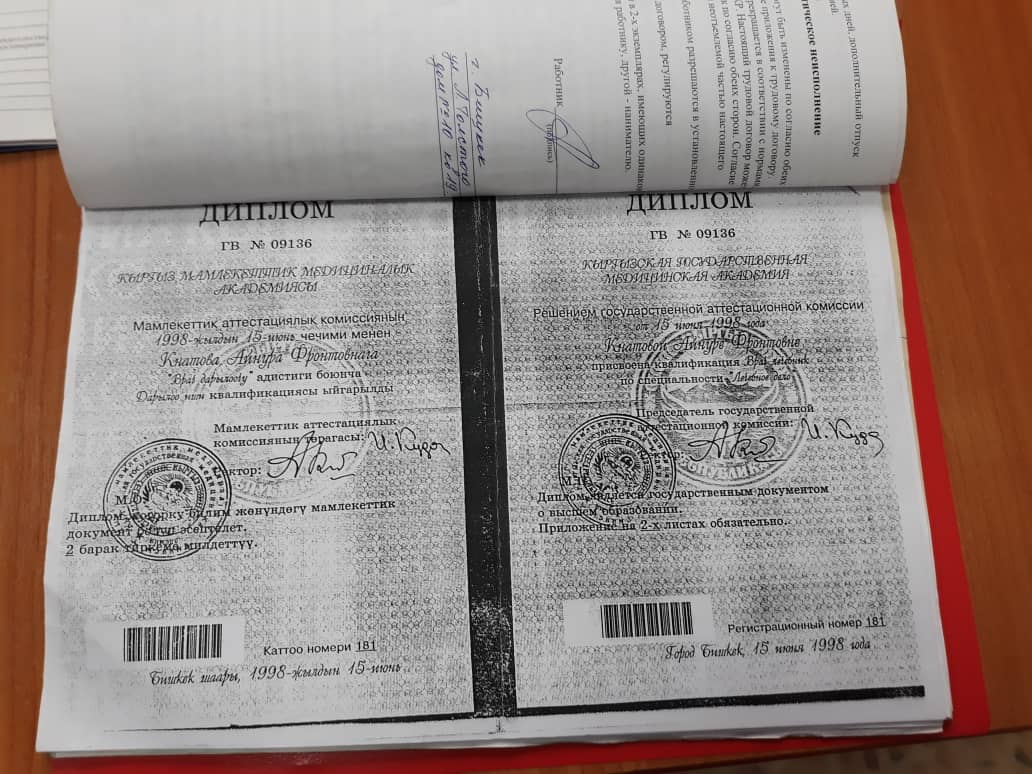 ых дней, дополнительный отпуск
ней.
гут быть изменены по согласию обеих
е приложения к трудовому договору.
рекращается в соответствии с нормами
Р. Настоящий трудовой договор може
к по согласию обеих сторон. Согласие
неотъемлемой частью настоящего
тическое неисполнение
ботником разрешаются в установленн
договором, регулируются
в 2-х экземплярах, имеющих одинако
я работнику, другой - нанимателю.
Работник
(подпись)
г. Бишкек
ул Л Толстого
дом №210 кв/19
ДИПЛОМ
ГВ № 09136
КЫРГЫЗ МАМЛЕКЕТТИК МЕДИЦИНАЛЫК
АКАДЕМИЯСЫ
Мамлекеттик аттестациялык комиссиянын
1998-жылдын 15-июнь чечими менен
Кнатова Айнура Фронтовнага
"Врач дарылоочу" адистиги боюнча
Дарылоо иши квалификациясы ыйгарылды
Мамлекеттик аттестациялык
комиссиянын төрагасы:
ктор:
М
Диплом жогорку билим жөнүндөгү мамлекеттик
документ болуп эсептелет.
2 барак тиркеме милдеттүү.
Каттоо номери 181
Бишкек шаары, 1998-жылдын 15-июнь
ДИПЛОМ
ГВ № 09136
КЫРГЫЗСКАЯ ГОСУДАРСТВЕННАЯ
МЕДИЦИНСКАЯ АКАДЕМИЯ
Решением государственной аттестационной комиссии
от 15 июня 1998 года
Кнатовой Айнуре Фронтовне
присвоена квалификация Врач лечебник
по специальности "Лечебное дело"
Председатель государственной
аттестационной комиссии:
М
Диплом является государственным документом
о высшем образовании.
Приложение на 2-х листах обязательно.
Регистрационный номер 181
Город Бишкек, 15 июня 1998 года